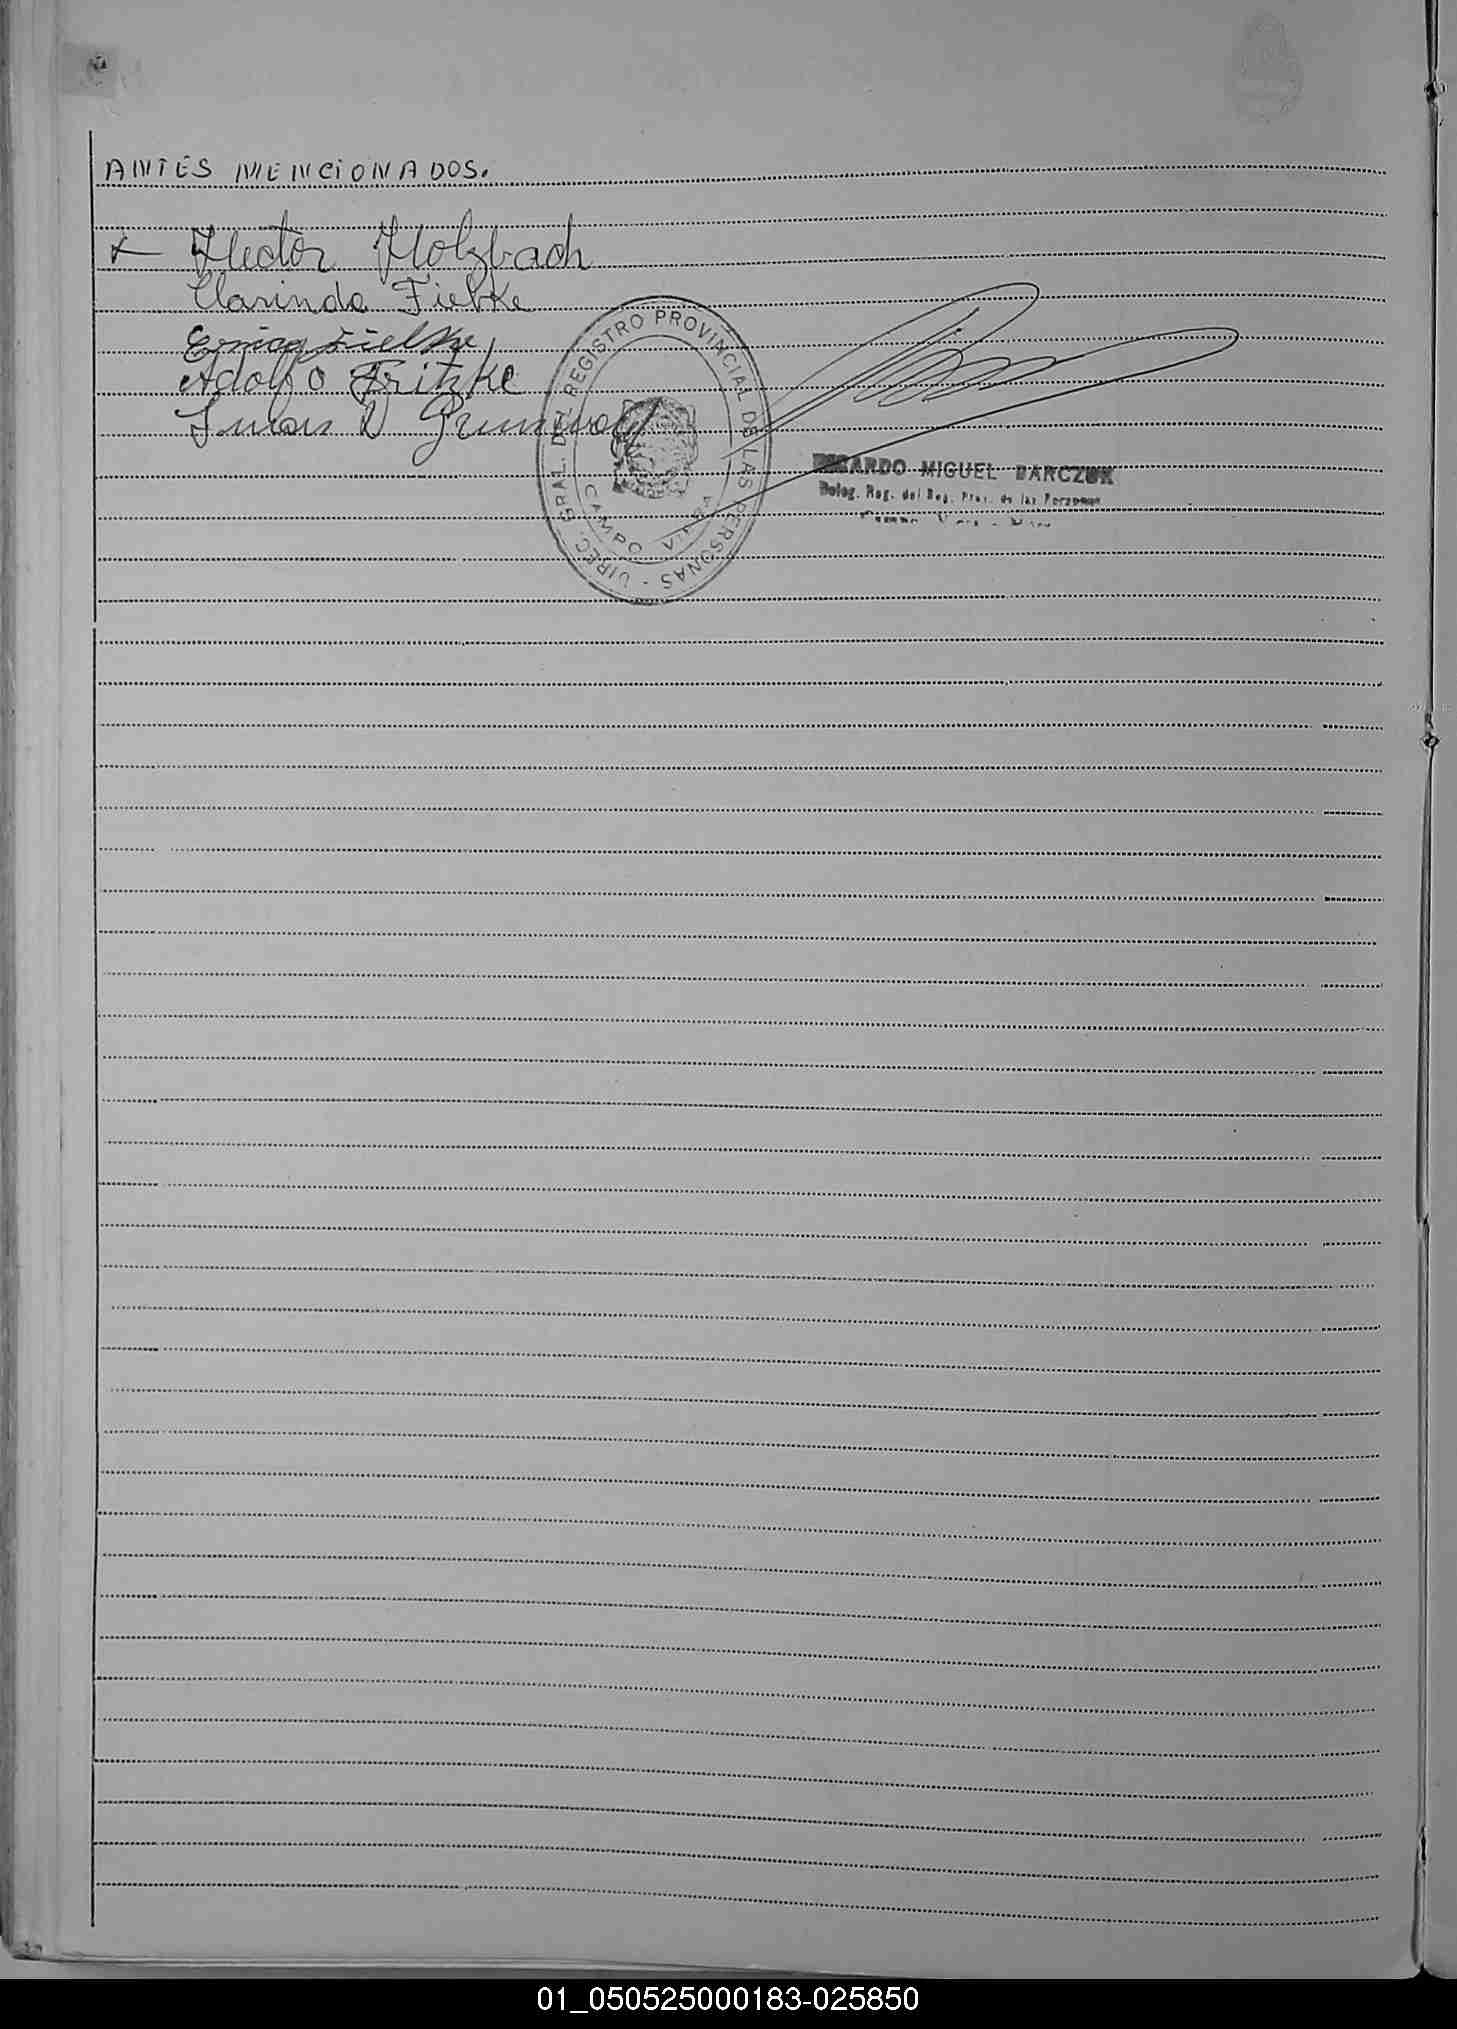 ANTES MENCIONADOS.
Hector Holzbach
Clarinda Fiebke
Fielske
Adolfo Fritzke
DIREC. GRAL. DEL REGISTRO PROVINCIAL DE LAS PERSONAS -
CAMPO VIERA
RICARDO MIGUEL BARCZUK
Deleg. Reg. del Reg. Prov. de las Personas
01_050525000183-025850